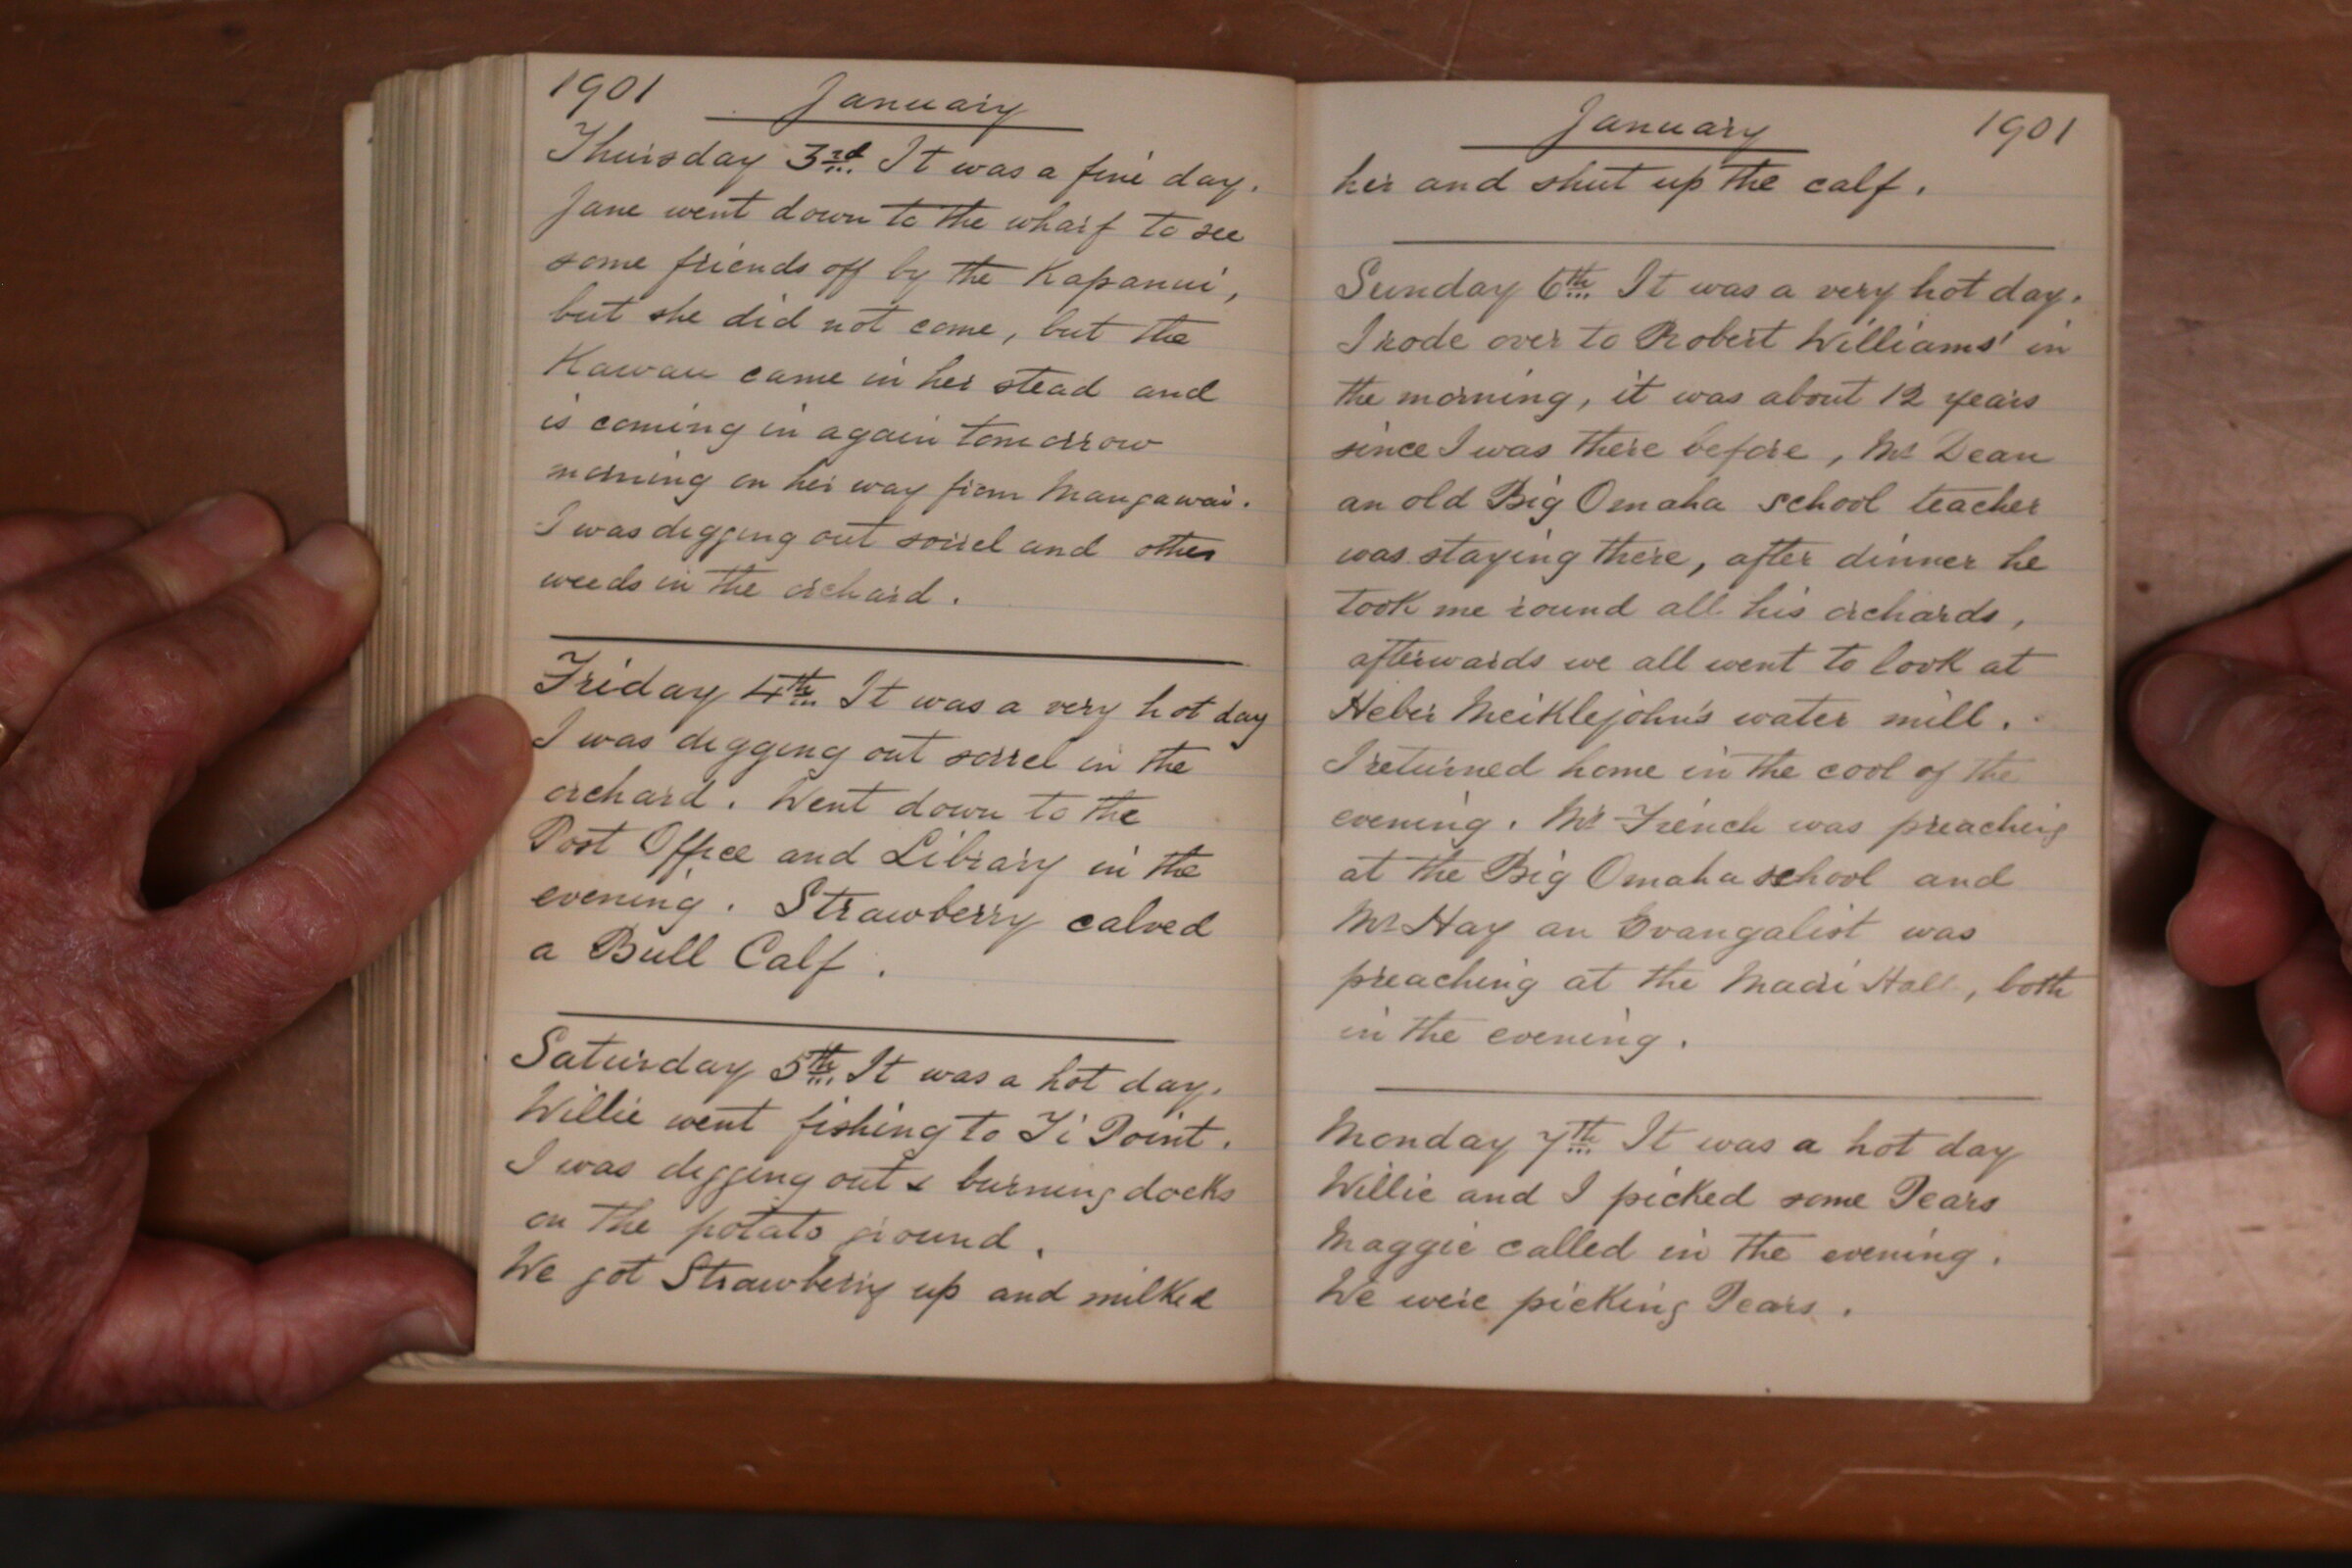 1901 January
Thursday 3rd. It was a fine day.
Jane went down to the wharf to see
some friends off by the Kapanui,
but she did not come, but the
Kawau came in her stead and
is coming in again tomorrow
morning on her way from Mangawai.
I was digging out sorrel and other
weeds in the orchard.
Friday 4th. It was a very hot day
I was digging out sorrel in the
orchard. Went down to the
Post Office and Library in the
evening. Strawberry calved
a Bull Calf.
Saturday 5th. It was a hot day.
Willie went fishing to Ti Point.
I was digging out & burning docks
on the potato ground.
We got Strawberry up and milked
January 1901
her and shut up the calf.
Sunday 6th. It was a very hot day.
I rode over to Robert Williams' in
the morning, it was about 12 years
since I was there before, Mr Dean
an old Big Omaha school teacher
was staying there, after dinner he
took me round all his orchards,
afterwards we all went to look at
Heber Meiklejohn's water mill.
I returned home in the cool of the
evening. Mr French was preaching
at the Big Omaha school and
Mr Hay an Evangalist was
preaching at the Maori Hall, both
in the evening.
Monday 7th. It was a hot day
Willie and I picked some Pears
Maggie called in the evening.
We were picking Pears.